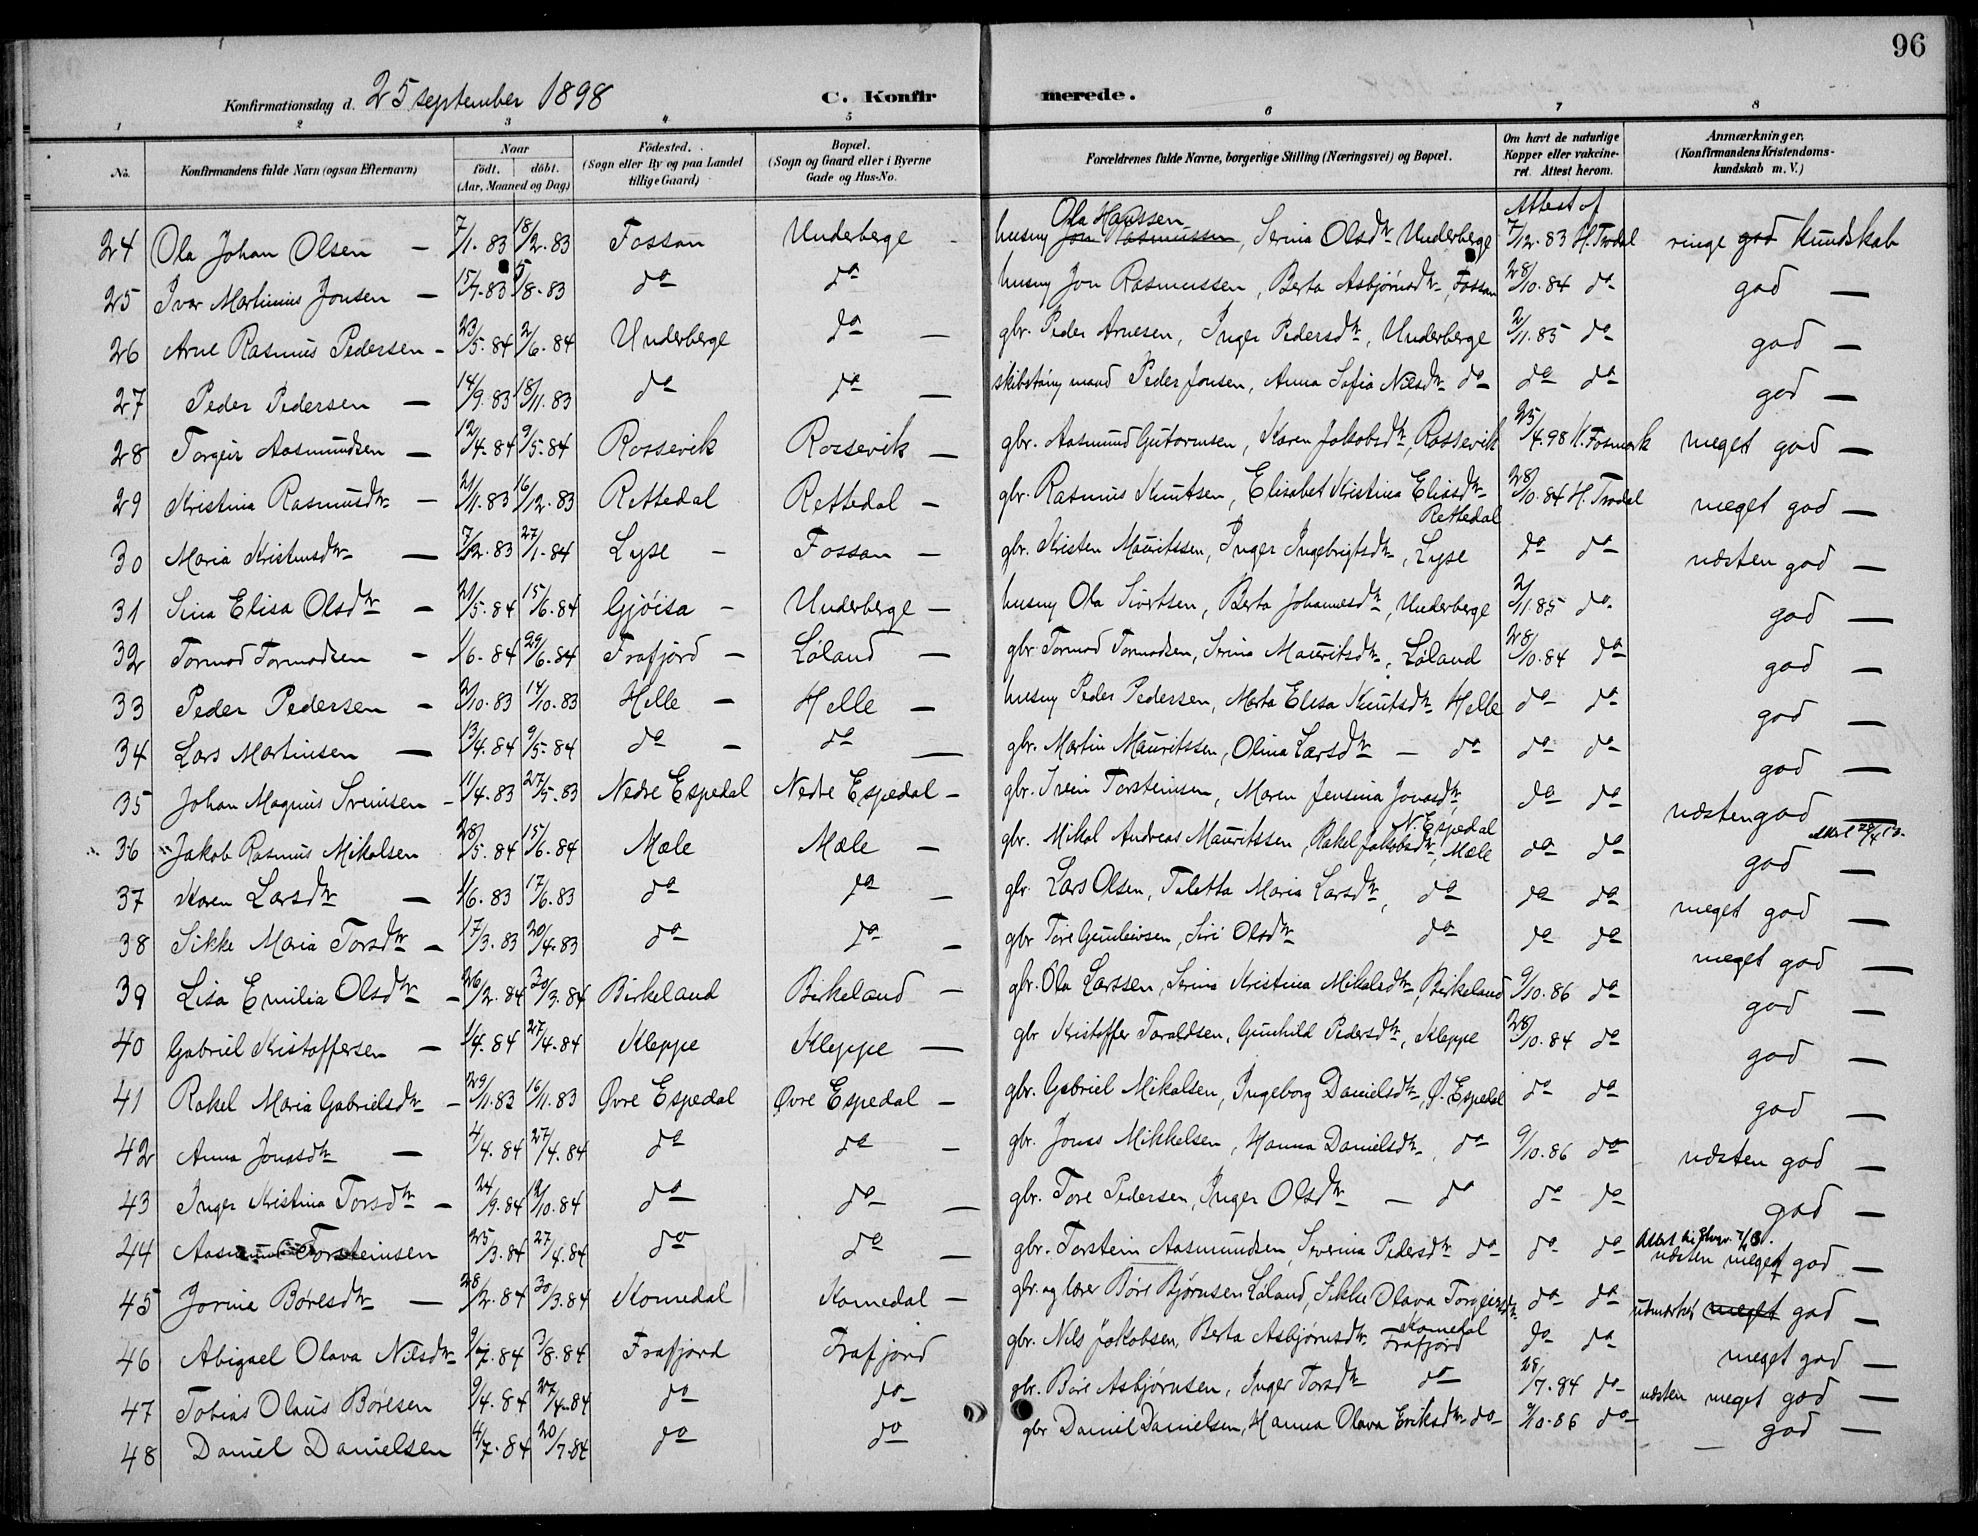 96
Konfirmationsdag d. 25 september 1898 C. Konfirmerede.
1 2 3 4 5 6 7 8
No. Konfirmandens fulde Navn (ogsaa Efternavn) Naar födt. döbt. (Aar, Maaned og Dag) Födested. (Sogn eller By og paa Landet tillige Gaard) Bopæl. (Sogn og Gaard eller i Byerne Gade og Hus-No. Forældrenes fulde Navne, borgerlige Stilling (Næringsvei) og Bopæl. Om havt de naturlige Kopper eller vakcineret. Attest herom. Anmærkninger. (Konfirmandens Kristendomskundskab m. V.)
Ola Hanssen Attest af
24 Ola Johan Olsen — 7/1. 83 18/2. 83 Fossan Underberge - husmg Jon Rasmussen, Serina Olsdtr Underberge 7/12. 83 H. Trodal ringe god Kundskab
25 Ivar Martinius Jonsen — 15/7. 83 5/8. 83 do do husmg Jon Rasmussen, Berta Asbjørnsdtr, Fossan 28/10. 84 do god —
26 Arne Rasmus Pedersen - 23/5. 84 2/6. 84 Underberge do — gbr. Peder Arnesen, Inger Pedersdtr, Underberge 2/11. 85 do god —
27 Peder Pedersen — 14/9. 83 18/11. 83 do do — skibstømmand Peder Jonsen, Anna Sofia Nilsdtr do do do god —
28 Torgeir Aasmundsen — 12/4. 84 9/5. 84 Rossevik Rossevik — gbr. Aasmund Gutormsen, Karen Jakobsdtr, Rossevik 25/4. 98 K. Fosmark meget god —
29 Kristina Rasmusdtr — 21/11. 83 16/12. 83 Rettedal Rettedal — gbr. Rasmus Knutsen, Elisabet Kristina Eliasdtr Rettedal 28/10. 84 H. Trodal meget god —
30 Maria Kristensdtr — 7/12. 83 27/1. 84 Lyse — Fossan — gbr. Kristen Mauritssen, Inger Ingebrigtsdtr, Lyse do do næsten god —
31 Sina Elisa Olsdtr — 21/5. 84 15/6. 84 Gjøisa — Underberge — husmg Ola Sivertsen, Berta Johannesdtr, Underberge 2/11. 85 do god —
32 Tormod Tormodsen — 1/6. 84 29/6. 84 Frafjord — Løland — gbr. Tormod Tormodsen, Serina Mauritsdtr, Løland 28/10. 84 do god —
33 Peder Pedersen — 2/10. 83 14/10. 83 Helle — Helle — husmg Peder Pedersen, Marta Elisa Knutsdtr Helle do do god —
34 Lars Martinsen — 13/4. 84 9/5. 84 do — do — gbr. Martin Mauritssen, Olina Larsdtr — do do do god —
35 Johan Magnus Sveinsen - 11/4. 83 27/5. 83 Nedre Espedal Nedre Espedal — gbr. Svein Torsteinsen, Maren Jensina Jonasdtr, N. Espedal do do næsten god —
36 Jakob Rasmus Mikalsen 28/5. 84 15/6. 84 Mæle Mæle — gbr. Mikal Andreas Mauritssen, Rakel Jakobsdtr, Mæle do do god —
37 Karen Larsdtr — 1/6. 83 17/6. 83 do do — gbr. Lars Olsen, Taletta Maria Larsdtr, do do do meget god —
38 Sikke Maria Torsdtr — 17/3. 83 20/4. 83 do do — gbr Tore Gunleivsen, Siri Olsdtr do do do meget god —
39 Lisa Emilia Olsdtr — 26/2. 84 30/3. 84 Birkeland Birkeland — gbr. Ola Larssen, Serina Kristina Mikalsdtr, Birkeland 9/10. 86 do god —
40 Gabriel Kristoffersen — 1/4. 84 27/4. 84 Kleppe Kleppe — gbr Kristoffer Taraldsen, Gunhild Pedersdtr, Kleppe 28/10. 84 do god —
41 Rakel Maria Gabrielsdtr — 29/11. 83 16/11. 83 Øvre Espedal Øvre Espedal — gbr. Gabriel Mikalsen, Ingeborg Danielsdtr, Ø. Espedal do do god —
42 Anna Jonasdtr — 4/4. 84 27/4. 84 do do — gbr. Jonas Mikkelsen, Hanna Danielsdtr, do 9/10. 86 do næsten god —
43 Inger Kristina Torsdtr — 24/9. 84 12/10. 84 do do — gbr. Tore Pedersen, Inger Olsdtr — do do do god —
44 Aasmund Torsteinsen 25/3. 84 27/4. 84 do do — gbr. Torstein Aasmundsen, Severina Pedersdtr do do do næsten meget god —
45 Jorina Børesdtr — 28/2. 84 30/3. 84 Komedal Komedal — gbr. og lærer Børe Bjørnsen Løland, Sikke Olava Torgeirsdtr Komedal do do udmærket meget god —
46 Abigael Olava Nilsdtr 9/7. 84 3/8. 84 Frafjord Frafjord gbr. Nils Jakobsen, Berta Asbjørnsdtr Frafjord do do meget god —
47 Tobias Olaus Børesen 9/4. 84 27/4. 84 do do gbr. Børe Asbjørnsen, Inger Torsdtr do 28/7. 84 do næsten meget god —
48 Daniel Danielsen 4/7. 84 20/7. 84 do do gbr Daniel Danielsen, Hanna Olava Eriksdtr do 9/10. 86 do — god —